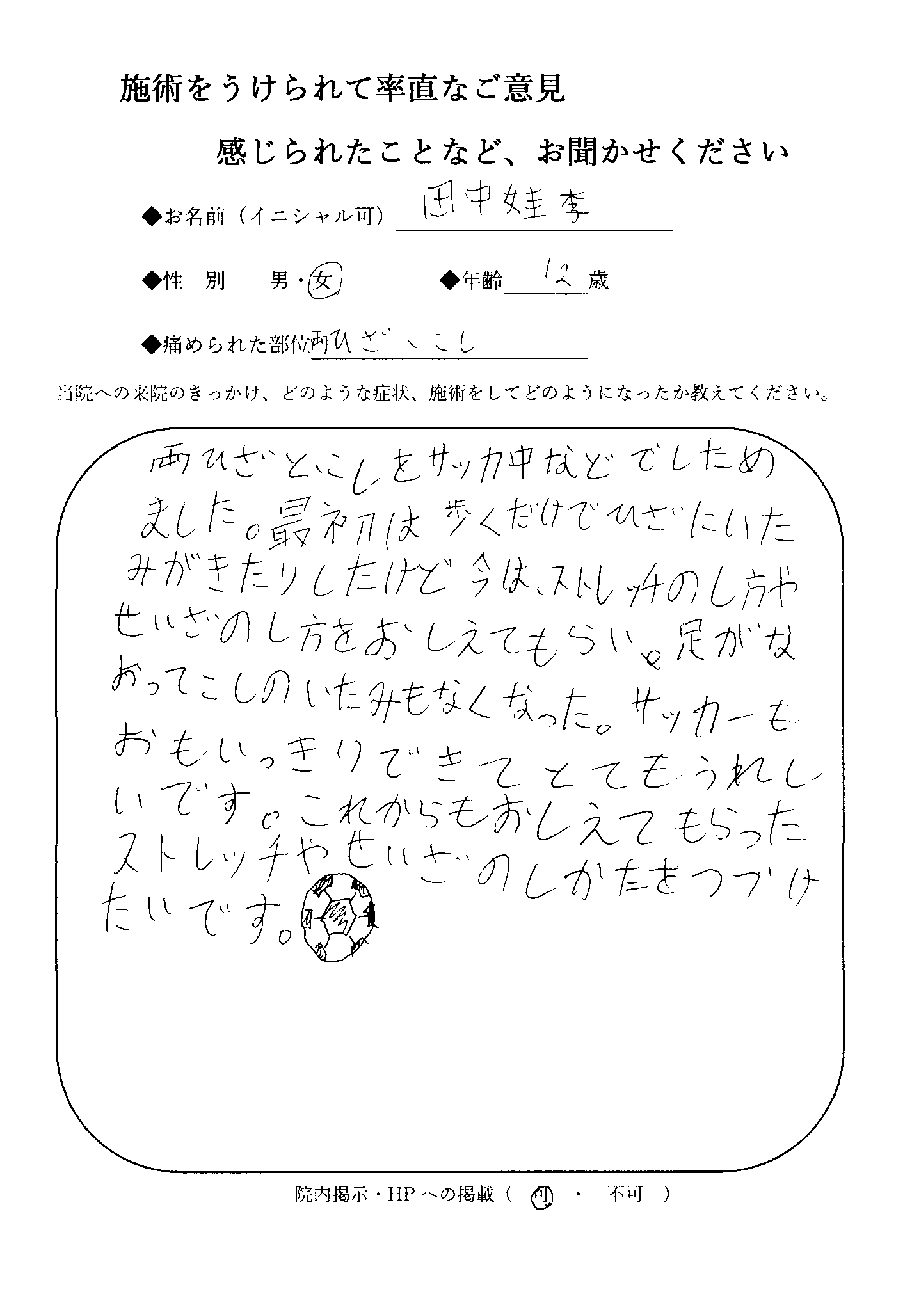 施術をうけられて率直なご意見
感じられたことなど、お聞かせください
◆お名前（イニシャル可） 田中娃李
◆性 別 男・女 ◆年齢 12 歳
◆痛められた部位 両ひざ、こし
当院への来院のきっかけ、どのような症状、施術をしてどのようになったか教えてください。
両ひざと、こしをサッカ中などでしため
ました。最初は歩くだけでひざにいた
みがきたりしたけど今は、ストレッチのし方や
せいざのし方をおしえてもらい。足がな
おってこしのいたみもなくなった。サッカーも
おもいっきりできてとてもうれし
いです。これからもおしえてもらった
ストレッチやせいざのしかたをつづけ
たいです。
院内掲示・HPへの掲載（ 可 ・ 不可 ）